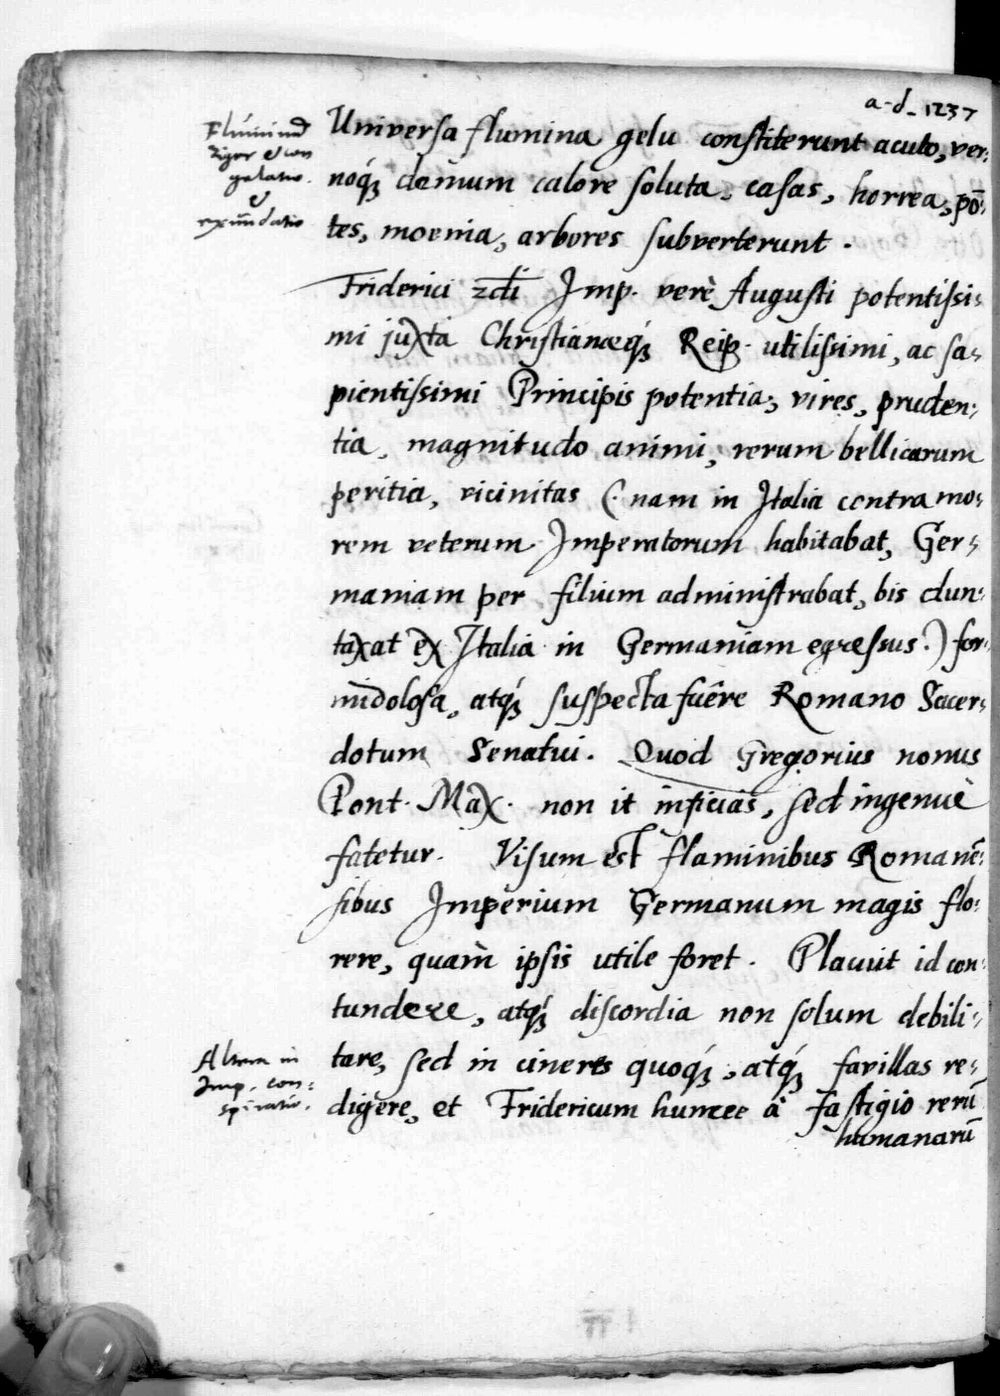 a. d. 1237
Fluminum
rigor et con
gelatio.
et
exundatio
Universa flumina gelu constiterunt acuto, ver:
noq́ꝫ demum calore soluta, casas, horrea, põ:
tes, moenia, arbores subverterunt.
Friderici 2di Imp. verè Augusti potentissi:
mi juxta Christianæq́ꝫ Reip. utilissimi, ac sa:
pientissimi Principis potentia, vires, pruden:
tia, magnitudo animi, rerum bellicarum
peritia, vicinitas (nam in Italia contra mo:
rem veterum Imperatorum habitabat, Ger:
maniam per filium administrabat, bis dun:
taxat ex Italia in Germaniam egressus.) for:
midolosa, atq́ꝫ suspecta fuêre Romano Sacer:
dotum Senatui. Quod Gregorius nonus
Pont. Max. non it inficias, sed ingenuè
fatetur. Visum est flaminibus Romanẽ:
sibus Imperium Germanum magis flo:
rere, quàm ipsis utile foret. Placuit id con:
tundere, atq́ꝫ discordia non solum debili:
tare, sed in cineres quoq́ꝫ, atq́ꝫ favillas re:
digere, et Fridericum huncce à fastigio rerũ
humanarũ
Altera in
Imp. con:
spiratio.